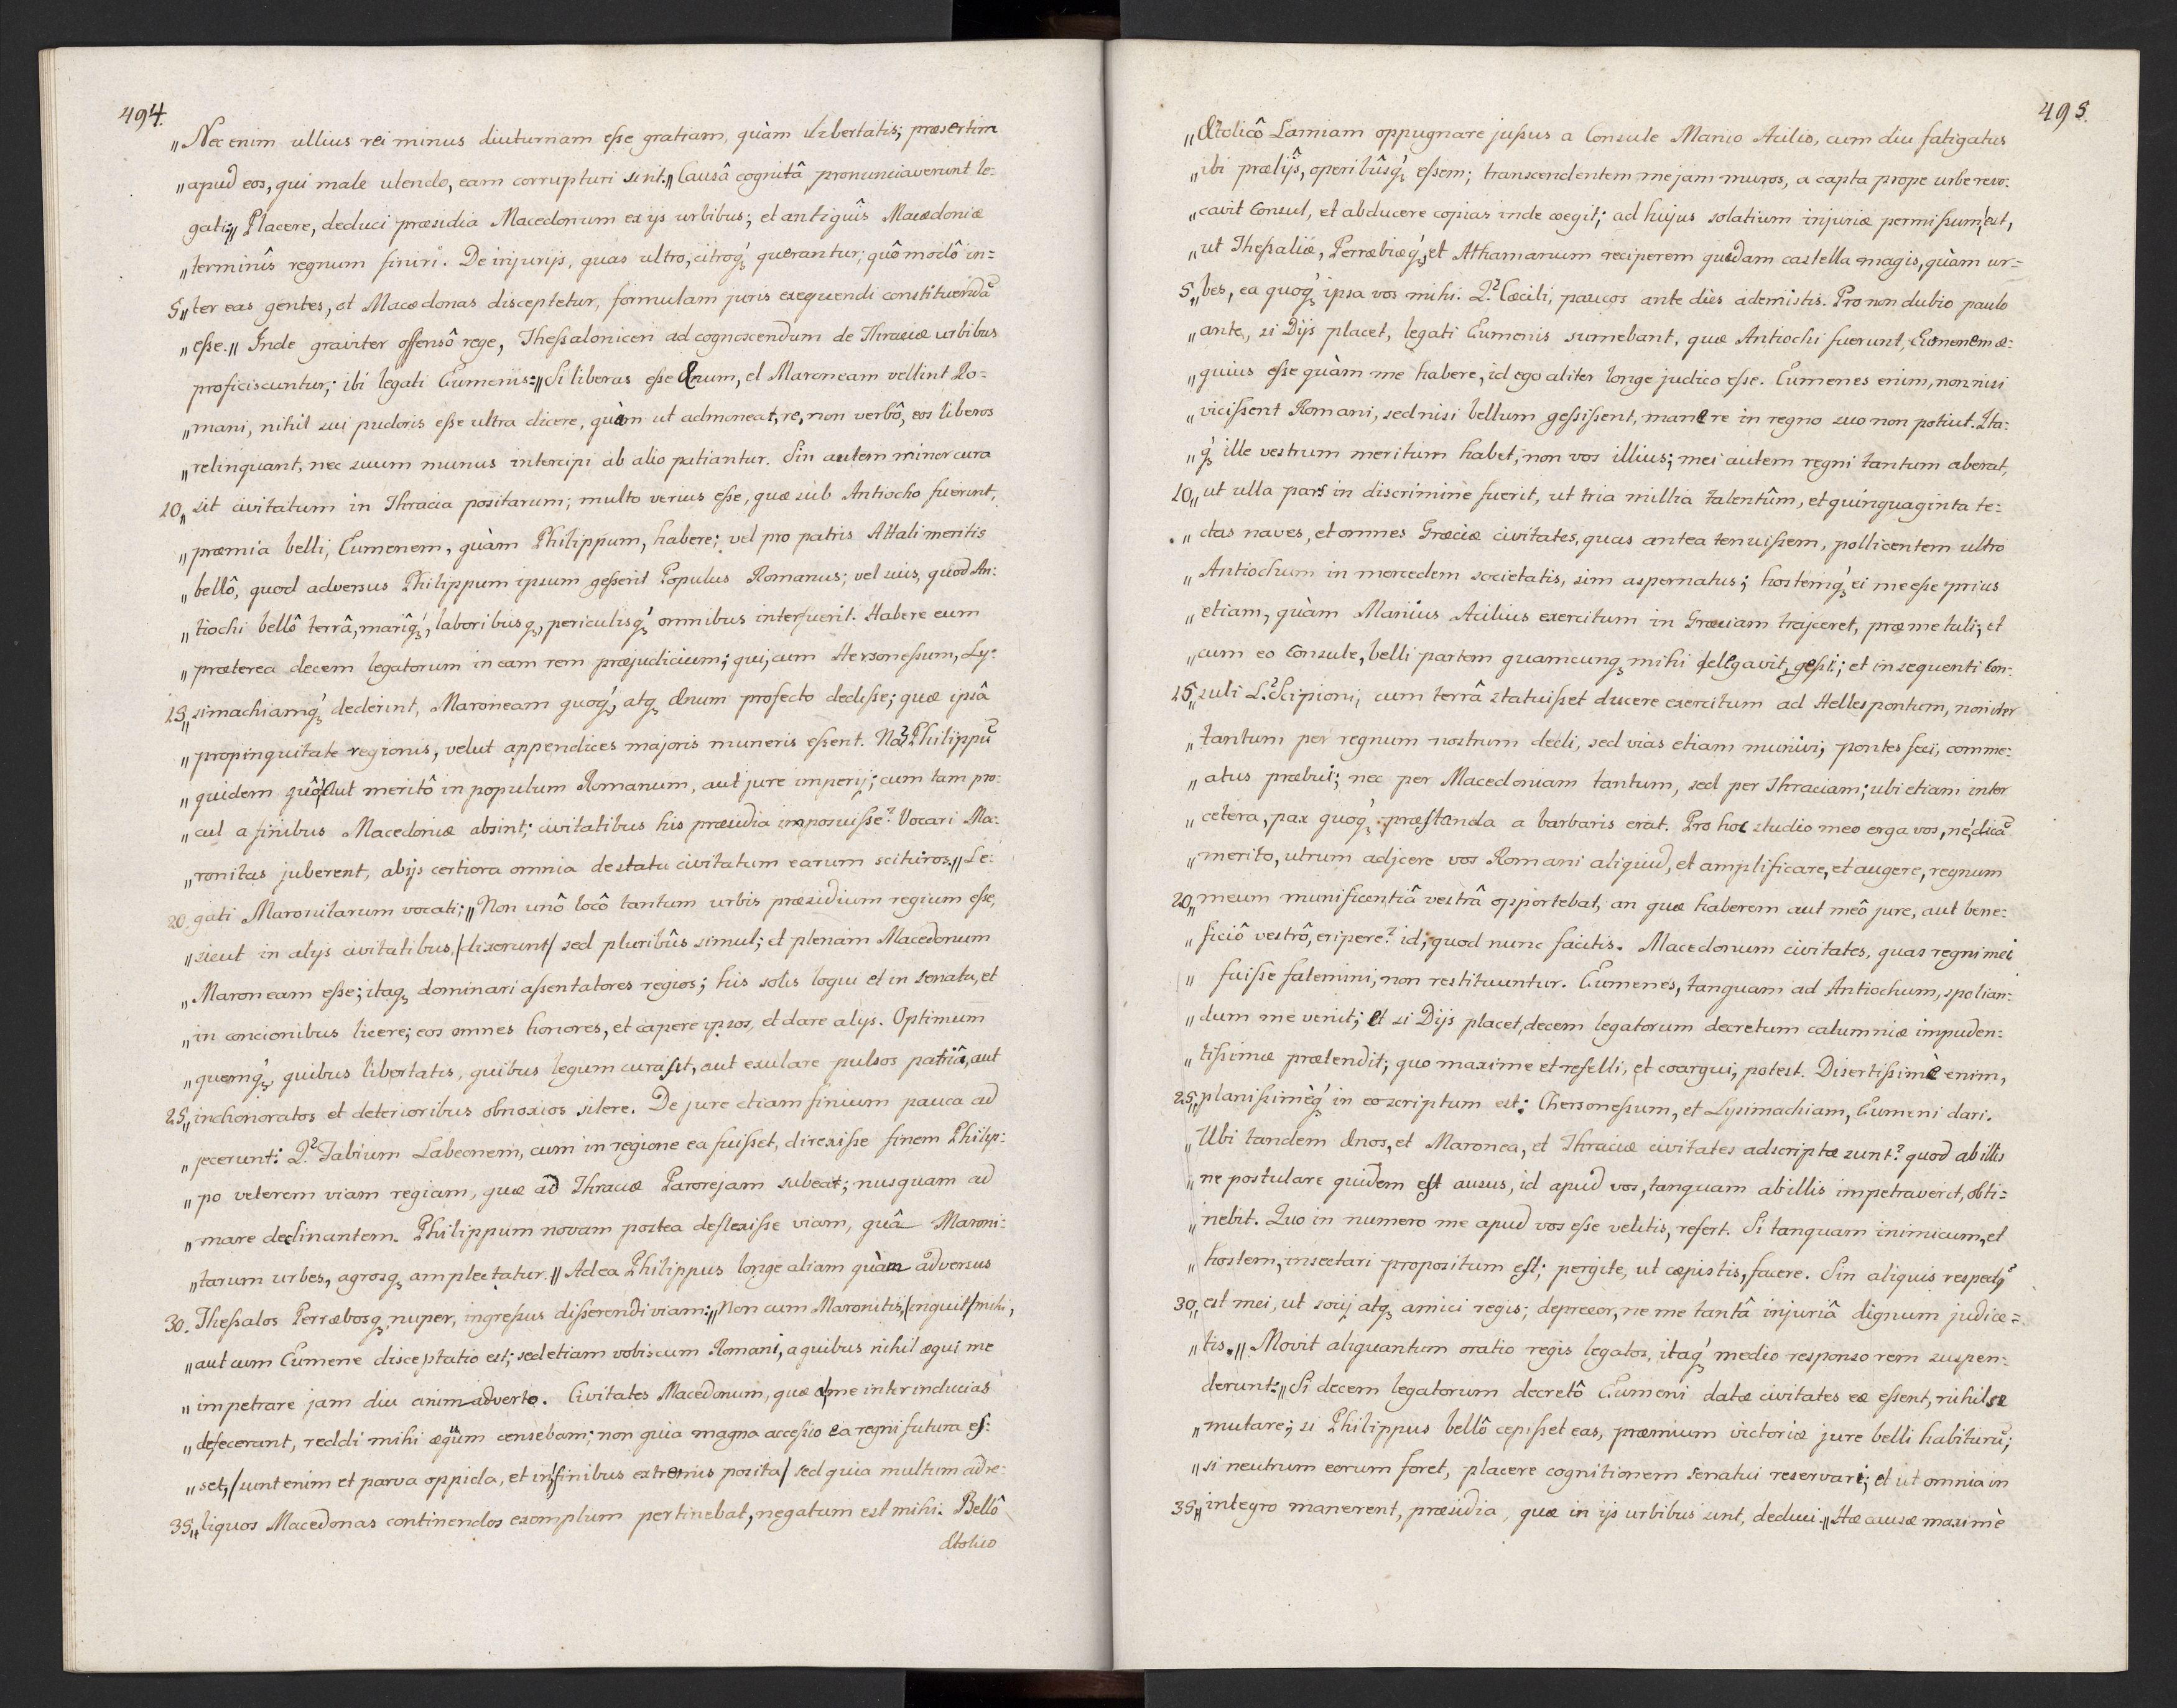 494.
„Nec enim ullius rei minus diuturnam eſse gratiam, quàm libertatis; præsertim
„apud eos, qui male utendo, eam corrupturi sint.„ Causâ cognitâ pronunciaverunt le=
gati:„ Placere, deduci præsidia Macedonum ex ijs urbibus; et antiquîs Macedoniæ
„terminîs regnum finiri. De injurijs, quas ultro, citroq́ꝫ querantur; quô modô in=
5„ter eas gentes, et Macedonas disceptetur, formulam juris exequendi constituendā
„eſse.„ Inde graviter offensô rege, Theſsalonicen ad cognoscendum de Thraciæ urbibus
proficiscuntur; ibi legati Eumenis:„ Si liberas eſse Ænum, et Maroneam vellint Ro=
„mani, nihil sui pudoris eſse ultra dicere, quàm ut admoneat, re, non verbô, eos liberos
„relinquant, nec suum munus intercipi ab alio patiantur. Sin autem minor cura
10„ sit civitatum in Thracia positarum; multo verius eſse, quæ sub Antiocho fuerint,
„præmia belli, Eumenem, quàm Philippum, habere; vel pro patris Attali meritis
„bellô, quod adversus Philippum ipsum geſserit Populus Romanus; vel suis, quod An=
„tiochi bellô terrâ, marîq́ꝫ, laboribusqꝫ, periculisq́ꝫ omnibus interfuerit. Habere eum
„præterea decem legatorum in eam rem præjudicium; qui, cum Hersoneſsum, Ly=
15„simachiamq́ꝫ dederint, Maroneam quoq́ꝫ, atqꝫ Ænum profecto dediſse; quæ ipsâ
„propinquitate regionis, velut appendices majoris muneris eſsent. Nam Philippū
„quidem quô aut meritô in populum Romanum, aut jure imperij; cum tam pro=
„cul a finibus Macedoniæ absint; civitatibus his præsidia imposuiſse? Vocari Ma=
„ronitas juberent, ab ijs certiora omnia de statu civitatum earum scituros.„ Le=
20. gati Maronitarum vocati;„ Non unô locô tantum urbis præsidium regium eſse,
„sicut in alijs civitatibus, /dixerunt/ sed pluribûs simul; et plenam Macedonum
„Maroneam eſse; itaqꝫ dominari aſsentatores regios; his solis loqui et in senatu, et
„in concionibus licere; eos omnes honores, et capere ipsos, et dare alijs. Optimum
„quemq́ꝫ, quibus libertatis, quibus legum cura sit, aut exulare pulsos patriâ, aut
25„ inchonoratos et deterioribus obnoxios silere. De jure etiam finium pauca ad
„jecerunt: Q. Fabium Labeonem, cum in regione ea fuiſset, direxiſse finem Philip=
„po veterem viam regiam, quæ ad Thraciæ Parorejam subeat; nusquam ad
„mare declinantem. Philippum novam postea deflexiſse viam, quâ Maroni=
„tarum urbes, agrosqꝫ amplectatur.„ Ad ea Philippus longe aliam quàm adversus
30. Theſsalos Perræbosqꝫ nuper, ingreſsus diſserendi viam:„ Non cum Maronitis, /inquit/ mihi,
„aut cum Eumene disceptatio est; sed etiam vobiscum Romani, a quibus nihil æqui me
„impetrare jam diu animadverto. Civitates Macedonum, quæ a me inter inducias
„defecerant, reddi mihi æquum censebam; non quia magna acceſsio ea regni futura eſ=
„set, /sunt enim et parva oppida, et in finibus extremis posita/ sed quia multum ad re=
35„liquos Macedonas continendos exemplum pertinebat, negatum est mihi. Bellô
Ætolico
495.
„Ætolicô Lamiam oppugnare juſsus a Consule Manio Acilio, cum diu fatigatus
„ibi prælijs, operibûsq́ꝫ eſsem; transcendentem me jam muros, a capta prope urbe revo=
„cavit Consul, et abducere copias inde coegit; ad hujus solatium injuriæ permiſsum est,
„ut Theſsaliæ, Perræbiæq́ꝫ, et Athamanum reciperem quædam castella magis, quàm ur=
5„bes, ea quoq́ꝫ ipsa vos mihi. Q. Cæcili, paucos ante dies ademistis. Pro non dubio paulo
„ante, si Dijs placet, legati Eumenis sumebant, quæ Antiochi fuerunt, Eumenem æ=
„quius eſse quàm me habere, id ego aliter longe judico eſse. Eumenes enim, non nisi
„viciſsent Romani, sed nisi bellum geſsiſsent, manere in regno suo non potuit. Ita=
„q́ꝫ ille vestrum meritum habet, non vos illius; mei autem regni tantum aberat,
10„ ut ulla pars in discrimine fuerit, ut tria millia talentûm, et quinquaginta te=
„ctas naves, et omnes Græciæ civitates, quas antea tenuiſsem, pollicentem ultro
„Antiochum in mercedem societatis, sim aspernatus; hostemq́ꝫ ei me eſse prius
„etiam, quàm Manius Acilius exercitum in Græciam trajceret, præ me tuli; et
„cum eo Consule, belli partem quamcunqꝫ mihi dellgavit, geſsi; et insequenti Con=
15„suli L. Scipioni, cum terrâ statuiſset ducere exercitum ad Hellespontum, non iter
„tantum per regnum nostrum dedi, sed vias etiam munivi, pontes feci, comme=
„atus præbui; nec per Macedoniam tantum, sed per Thraciam; ubi etiam inter
„cetera, pax quoq́ꝫ præstanda a barbaris erat. Pro hoc studio meo erga vos, ne dicā
„merito, utrum adjcere vos Romani aliquid, et amplificare, et augere, regnum
20„meum munificentiâ vestrâ opportebat, an quæ haberem aut meô jure, aut bene=
„ficiô vestrô, eripere? id, quod nunc facitis. Macedonum civitates, quas regni mei
„ fuiſse fatemini, non restituuntur. Eumenes, tanquam ad Antiochum, spolian=
„dum me venit; et si Dijs placet, decem legatorum decretum calumniæ impuden=
„tiſsimæ prætendit; quo maxime et refelli, et coargui, potest. Disertiſsimè enim,
25„planiſsimèq́ꝫ in eo scriptum est: Chersoneſsum, et Lysimachiam, Eumeni dari.
„Ubi tandem Ænos, et Maronea, et Thraciæ civitates adscriptæ sunt? quod ab illis
„ne postulare quidem est ausus, id apud vos, tanquam ab illis impetraverit, obti=
„nebit. Quo in numero me apud vos eſse velitis, refert. Si tanquam inimicum, et
„hostem, insectari propositum est; pergite, ut cæpistis, facere. Sin aliquis respectꝰ
30„ est mei, ut socij atqꝫ amici regis; deprecor, ne me tantâ injuriâ dignum judice=
„tis.„ Movit aliquantum oratio regis legatos, itaq́ꝫ medio responso rem suspen=
derunt:„ Si decem legatorum decretô Eumeni datæ civitates eæ eſsent, nihil se
„mutare; si Philippus bellô cepiſset eas, præmium victoriæ jure belli habiturū;
„si neutrum eorum foret, placere cognitionem senatui reservari; et ut omnia in
35„ integro manerent, præsidia, quæ in ijs urbibus sint, deduci.„ Hæ causæ maximè